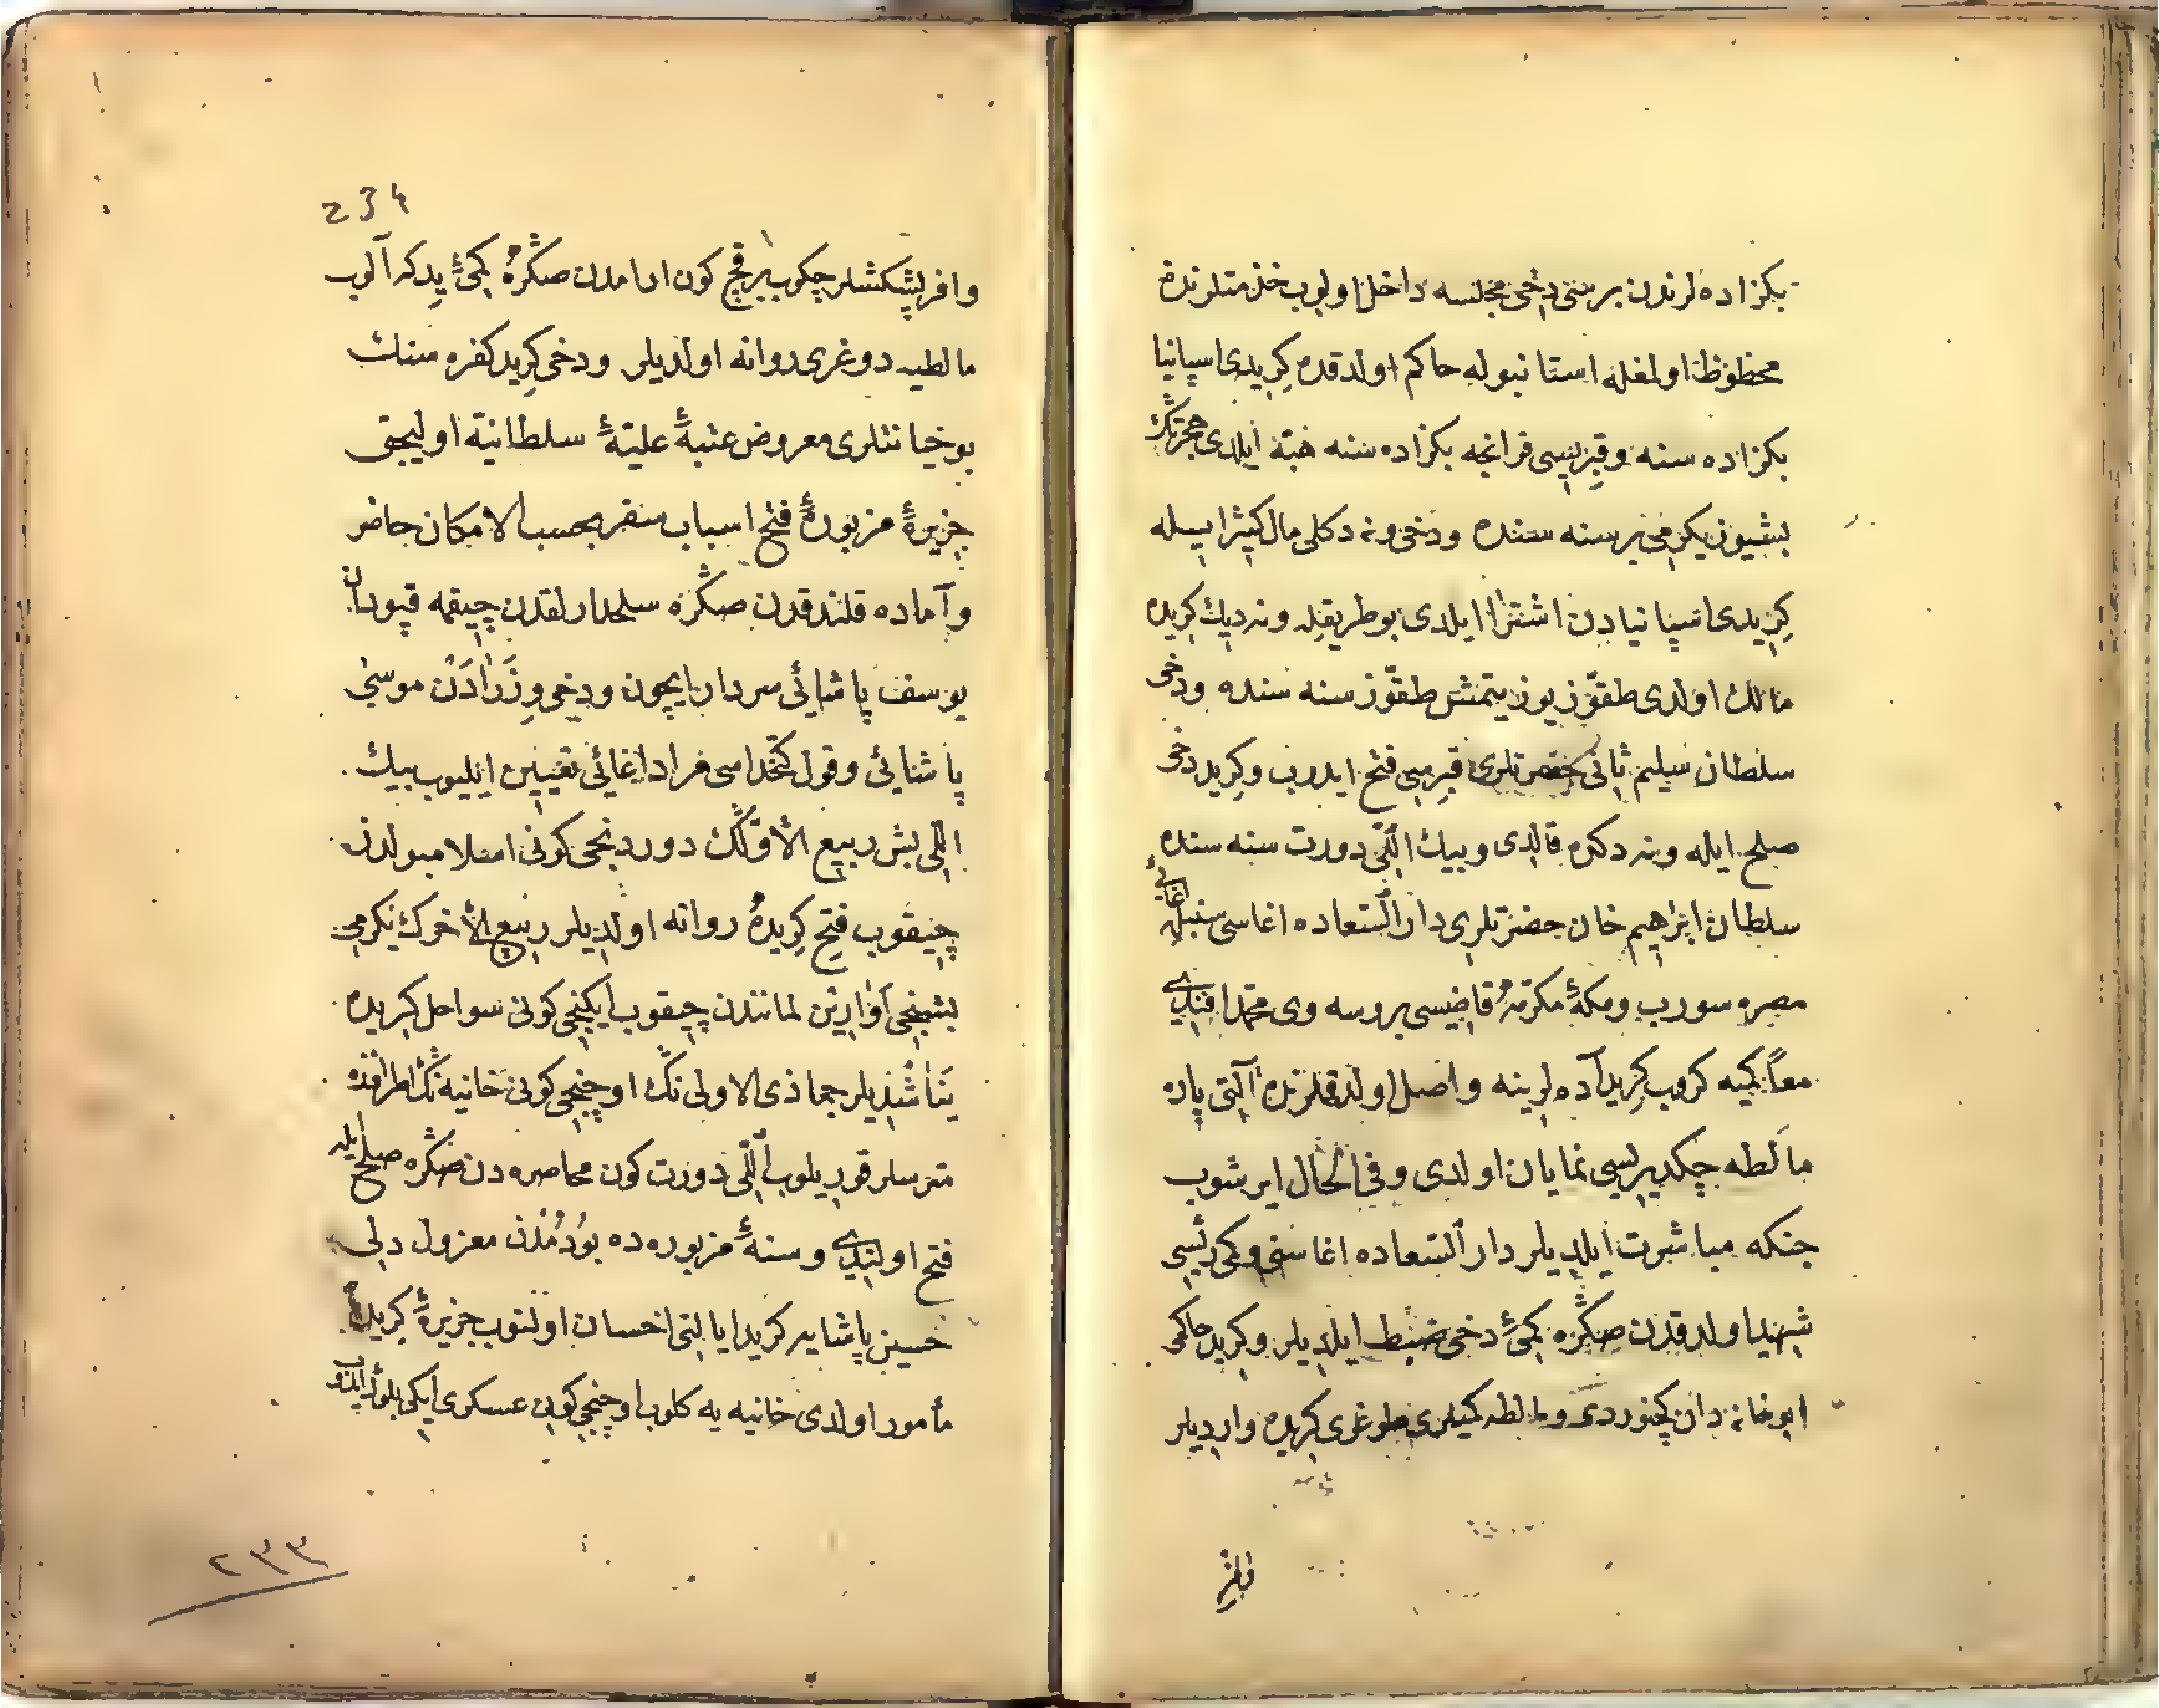 بكزاده لرندن برسنی دخی مجلسه داخل اولوب خذمتلرندن
محظوظ اولمغله استانبوله حاكم اولدقده كریدی اسپانیا
بكزاده سنه وقبریسی فرانجه بكزاده سنه هبة ایلدی هجرتڭ
بشیوز یكرمی بر سنه سنده ودخی ونه دكلی مال كثیر ایله
كریدی اسپانیادن اشترا ایلدی بو طریقله ونه دیك كریده
مالك اولدی طقوز یوز یتمش طقوز سنه سنده ودخی
سلطان سلیم ثانی حضرتلری قبرسی فتح ایدوب وكرید دخی
صلح ایله ونه دكده قالدی وبیك اللی دورت سنه سنده
سلطان ابراهیم خان حضرتلری دار السعاده اغاسی سنبل اغایی
مصره سوروب ومكهٔ مكرمه قاضیسی بروسه وی محمد افندی
معاً كمیه كروب كرید اده لرینه واصل اولدقلرنده التی پاره
مالطه چكدیریسی نمایان اولدی وفی الحال ایرشوب
جنكه مباشرت ایلدیلر دار السعاده اغاسی وكمی رئیسی
شهید اولدقدن صڭره كمیٔ دخی ضبط ایلدیلر وكرید حاكمی
ومالطه كمیلری طوغری كریده واردیلر
234
وافر پیشكشلر چكوب برقچ كون ارامدن صڭره كمیٔ یدكه آلوب
مالطیه دوغری روانه اولدیلر ودخی كرید كفره سنك
بو خیانتلری معروض عتبهٔ علیهٔ سلطانیة اولیجق
جزیرهٔ مزبورهٔ فتح اسباب سفر بحسب الامكان حاضر
وآماده قلندقدن صڭره سلحدارلقدن چیقمه قپودان
یوسف پاشایی سردار ایچون ودخی وزرادن موسی
پاشایی وقول كتخداسی مراد اغایی تعیین ایلیوب بیك
اللی بش ربیع الأولڭ دوردنجی كونی اسلامبولدن
چیقوب فتح كریده روانه اولدیلر ربیع الأخرك یكرمی
بشنجی آوارین لماندن چیقوب ایكنجی كونی سواحل كریده
یناشدیلر جماذی الاولی نڭ اوچنجی كونی خانیه نڭ اطرافنده
مترسلر قوریلوب اللی دورت كون محاصره دن صڭره صلح ایله
فتح اولندی وسنهٔ مزبوره ده بودمدن معزول دلی
حسین پاشایه كرید ایالتی احسان اولنوب جزیرهٔ كریده
مأمور اولدی خانیه یه كلوب اوچنجی كون عسكری ایكی بلوك ایدوب
٢٣٣